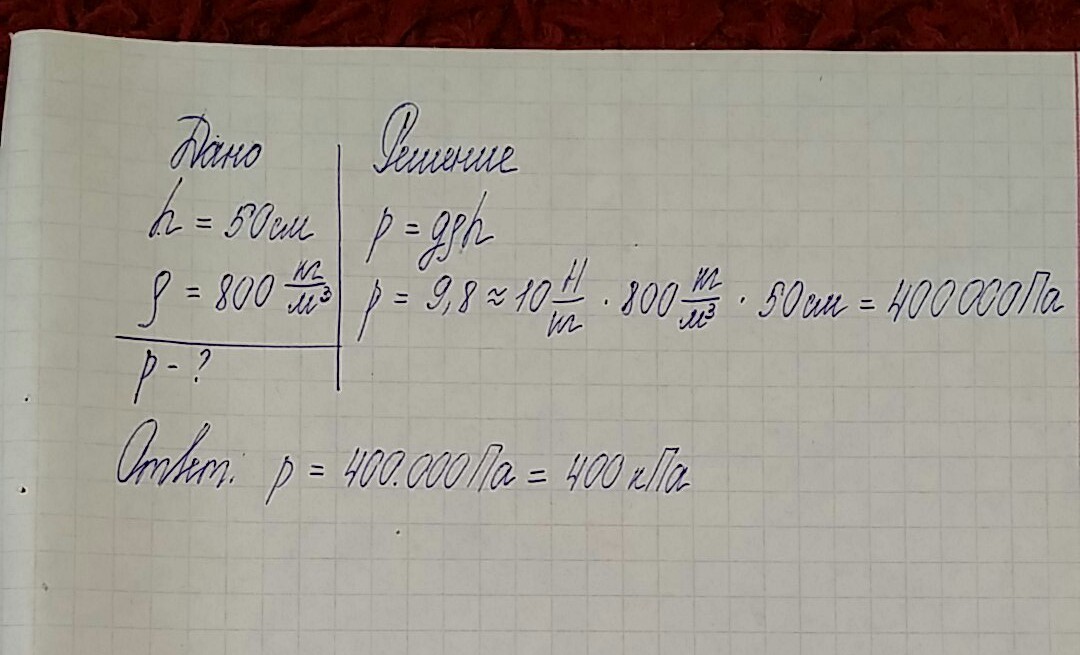 Дано
h = 50см
ρ = 800 кг/м³
p - ?
Решение
p = gρh
p = 9,8 ≈ 10 Н/кг · 800 кг/м³ · 50см = 400 000 Па
Ответ: p = 400.000 Па = 400 кПа